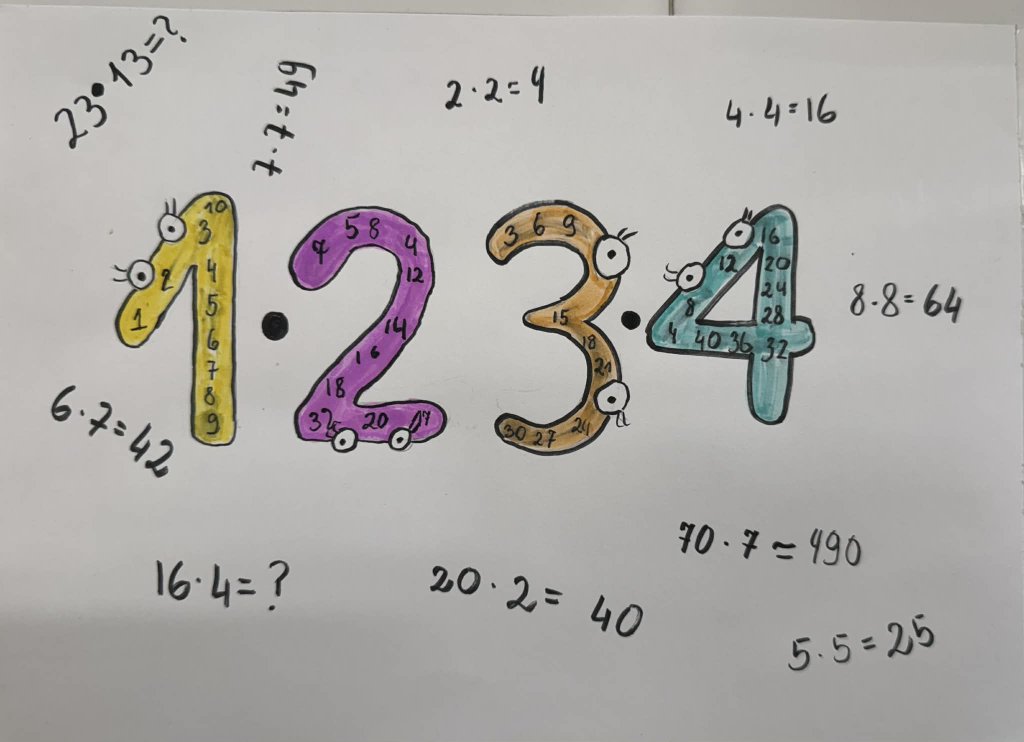 23•13=?
7·7=49
2·2=4
4·4=16
1•2 3•4
10
3
2
4
1
5
6
7
8
9
7 5 8 4
12
14
16
18
32 20 17
3 6 9
15
18
21
30 27 24
16
12 20
24
8 28
4 40 36 32
8·8=64
6·7=42
70·7=490
16·4=?
20·2=40
5·5=25